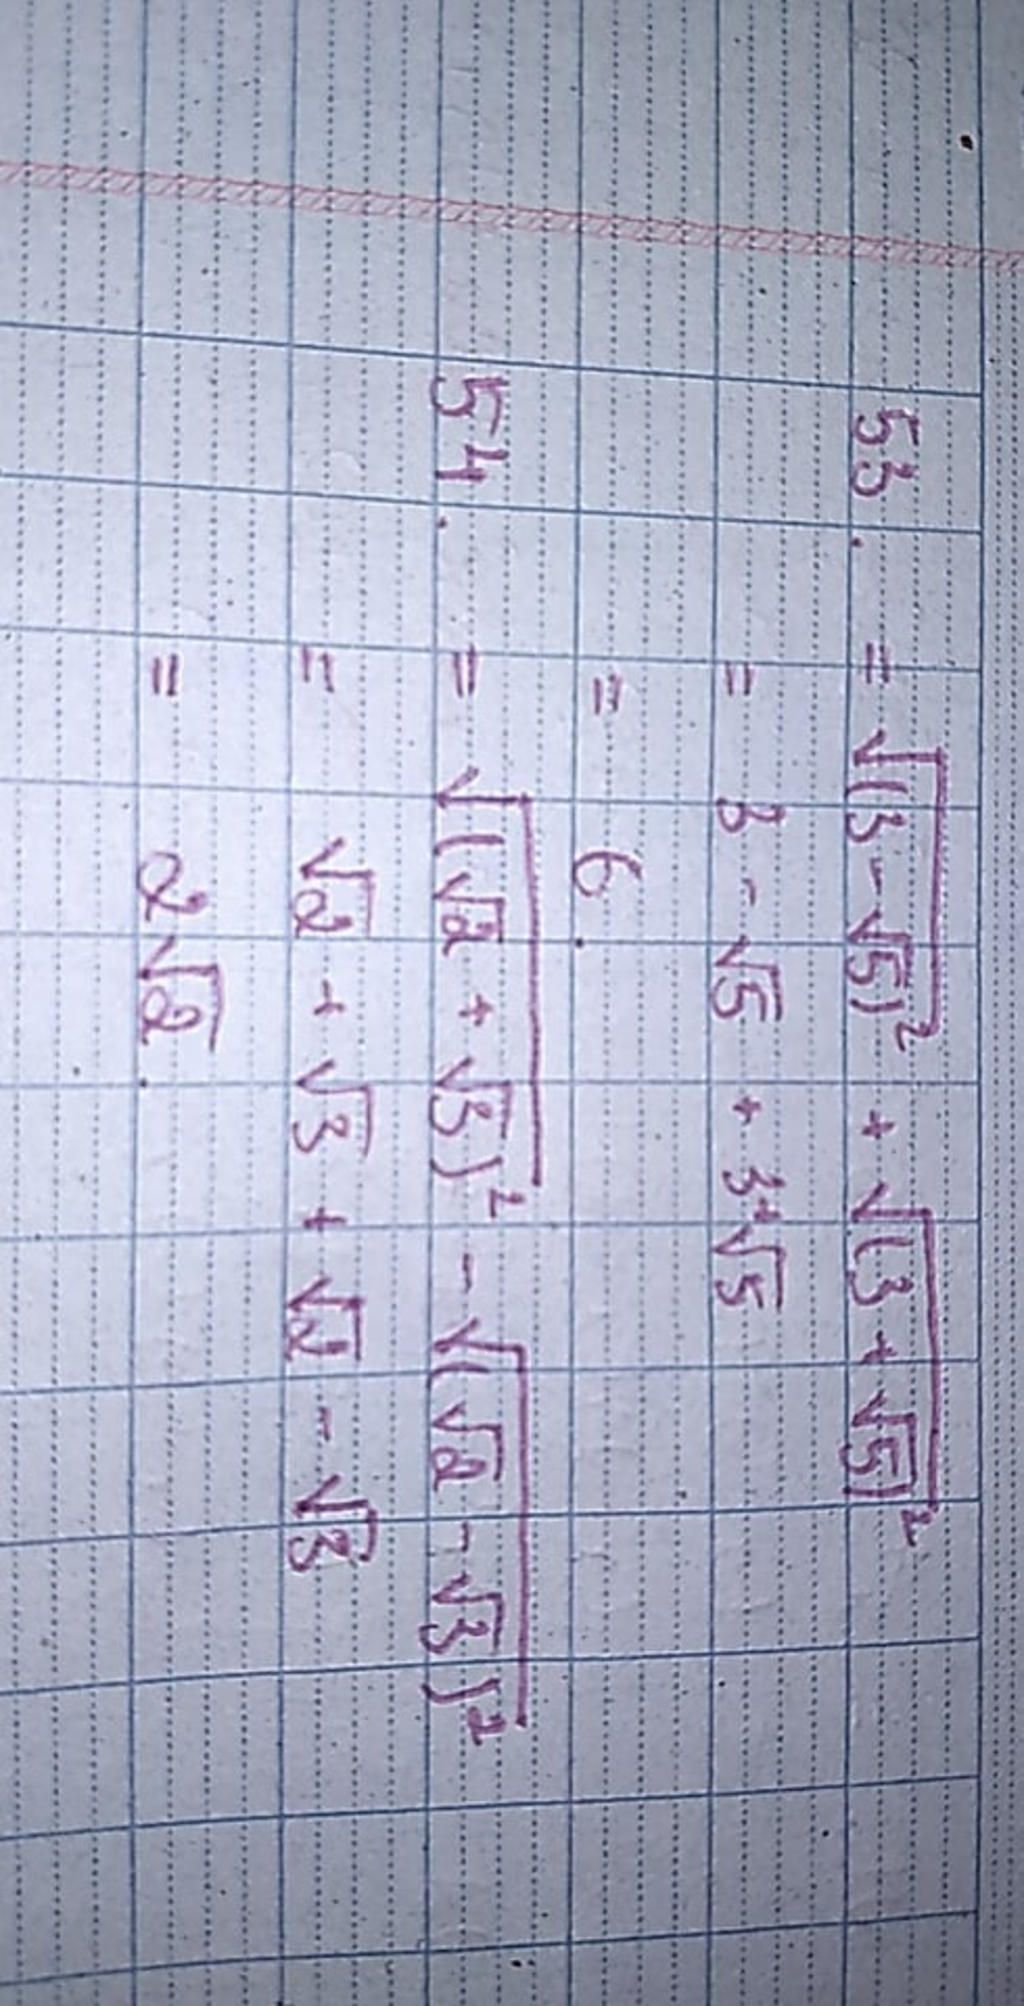 53. = √(3 - √5)² + √(3 + √5)²
= 3 - √5 + 3+√5
= 6.
54. = √(√2 + √3)² - √(√2 - √3)²
= √2 + √3 + √2 - √3
= 2√2.